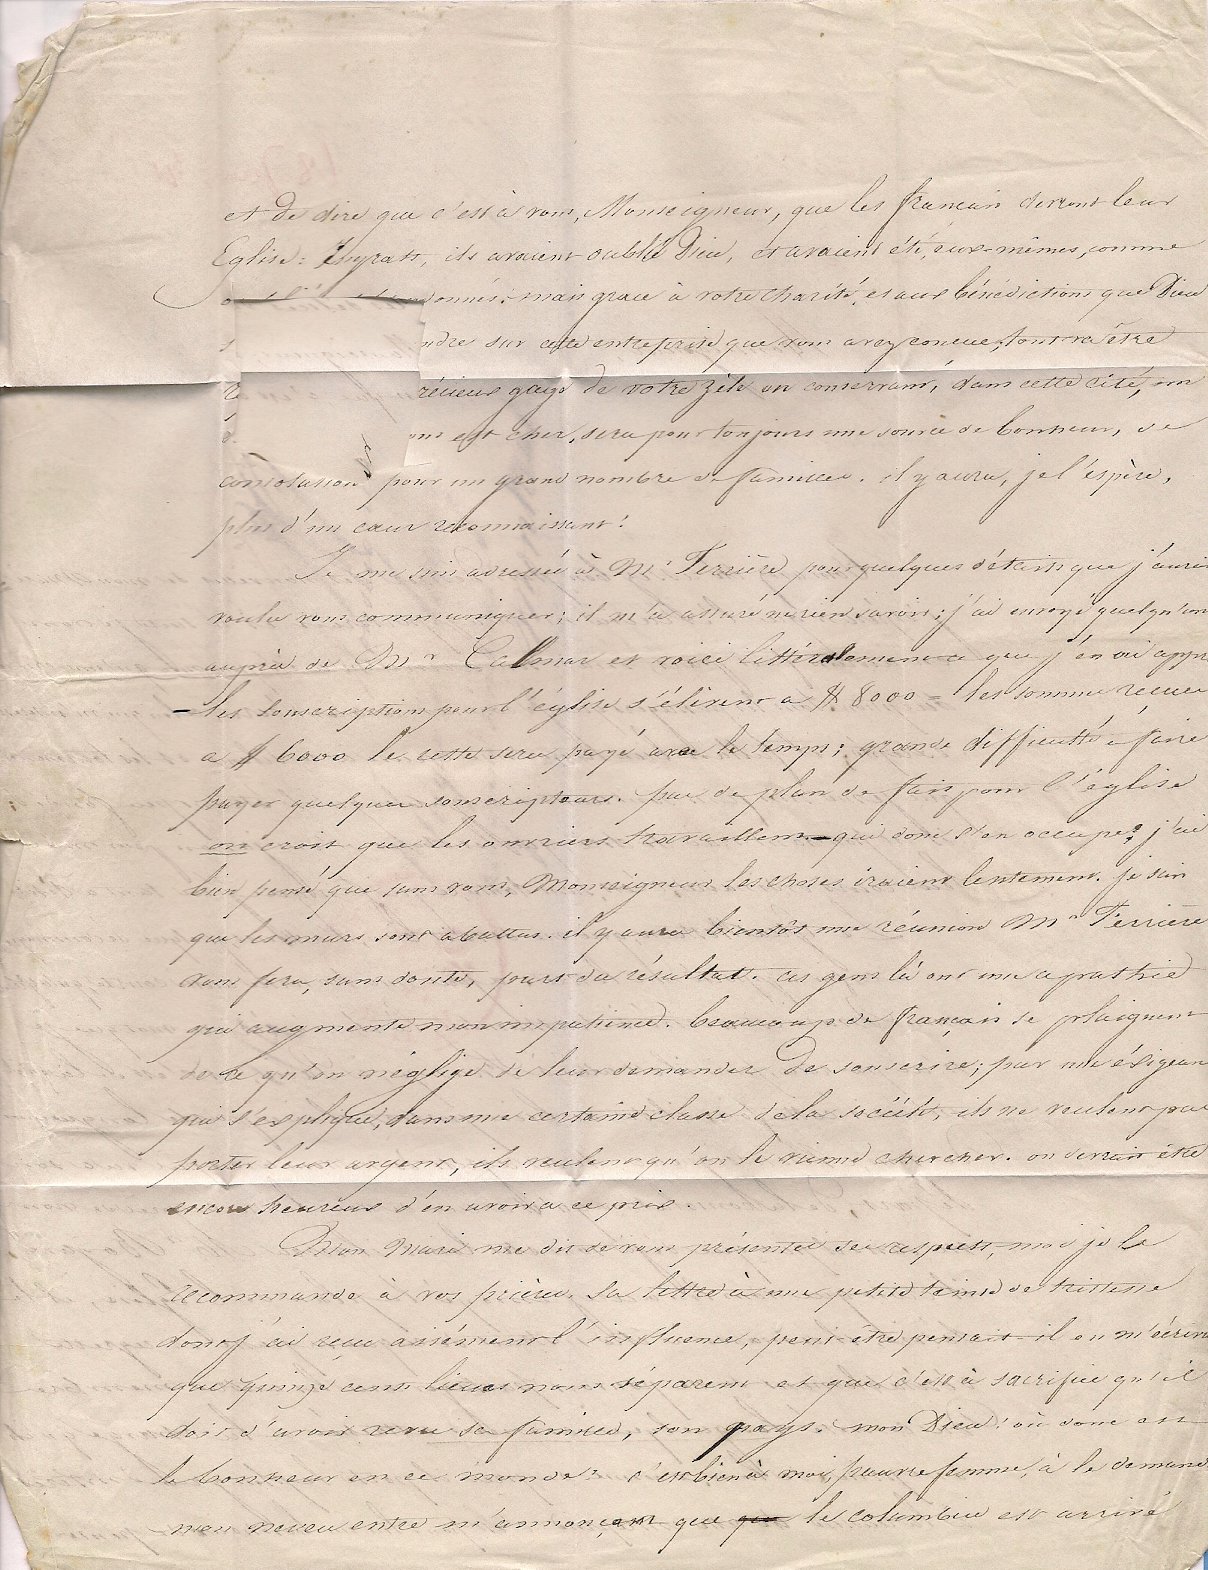 et de dire que c'est à vous, Monseigneur, que les français devront leur
Eglise: Ingrats, ils avaient oublié Dieu, et avaient été, eux-mêmes, comme
donnés: mais grace à votre charité, et aux bénédictions que Dieu
ndre sur cette entreprise que vous avez conçue, tout va être
récieux gage de votre zèle en conservant, dans cette cité, un
ous est cher, sera pour toujours une source de bonheur, de
consolation pour un grand nombre de familles. il y aura, je l'espère,
plus d'un cœur reconnaissant!
Je me suis adressée à Mr Ferrière pour quelques détails que j'aurais
voulu vous communiquer; il m'a assuré ne rien savoir; j'ai envoyé quelqu'un
auprès de Mr Calmar et voici littéralement ce que j'en ai appris
- les souscription pour l'église s'élèvent a $ 8000 = les sommes reçues
a $ 6000 le reste sera payé avec le temps; grande difficulté à faire
payer quelques souscripteurs. pas de plan de fait pour l'église
on croit que les ouvriers travaillent - qui donc s'en occupe? j'ai
bien pensé que sans vous, Monseigneur les choses iraient lentement. je sais
que les murs sont abattus. il y aura bientôt une réunion Mr Ferrière
vous fera, sans doute, part du résultat. ces gens là ont une apathie
qui augmente mon impatience. beaucoup de français se plaignent
de ce qu'on néglige de leur demander de souscrire; par une éxigeance
qui s'explique, dans une certaine classe de la société, ils ne veulent pas
porter leur argent, ils veulent qu'on le vienne chercher. on devrait être
encore heureux d'en avoir a ce prix.
Mon Mari me dit de vous présenter ses respects, moi je le
recommande à vos prières. Sa lettre à une petite teinte de tristesse
dont j'ai reçu aisément l'influence, peut-être pensait-il en m'écrivant
que quinze cents lieues nous séparent et que c'est à sacrifice qu'il
doit d'avoir revu sa famille, son pays. mon Dieu! où donc est
le bonheur en ce monde? c'est bien à moi, pauvre femme, à le demander
mon neveu entre m'annonçant que que le columbia est arrivé